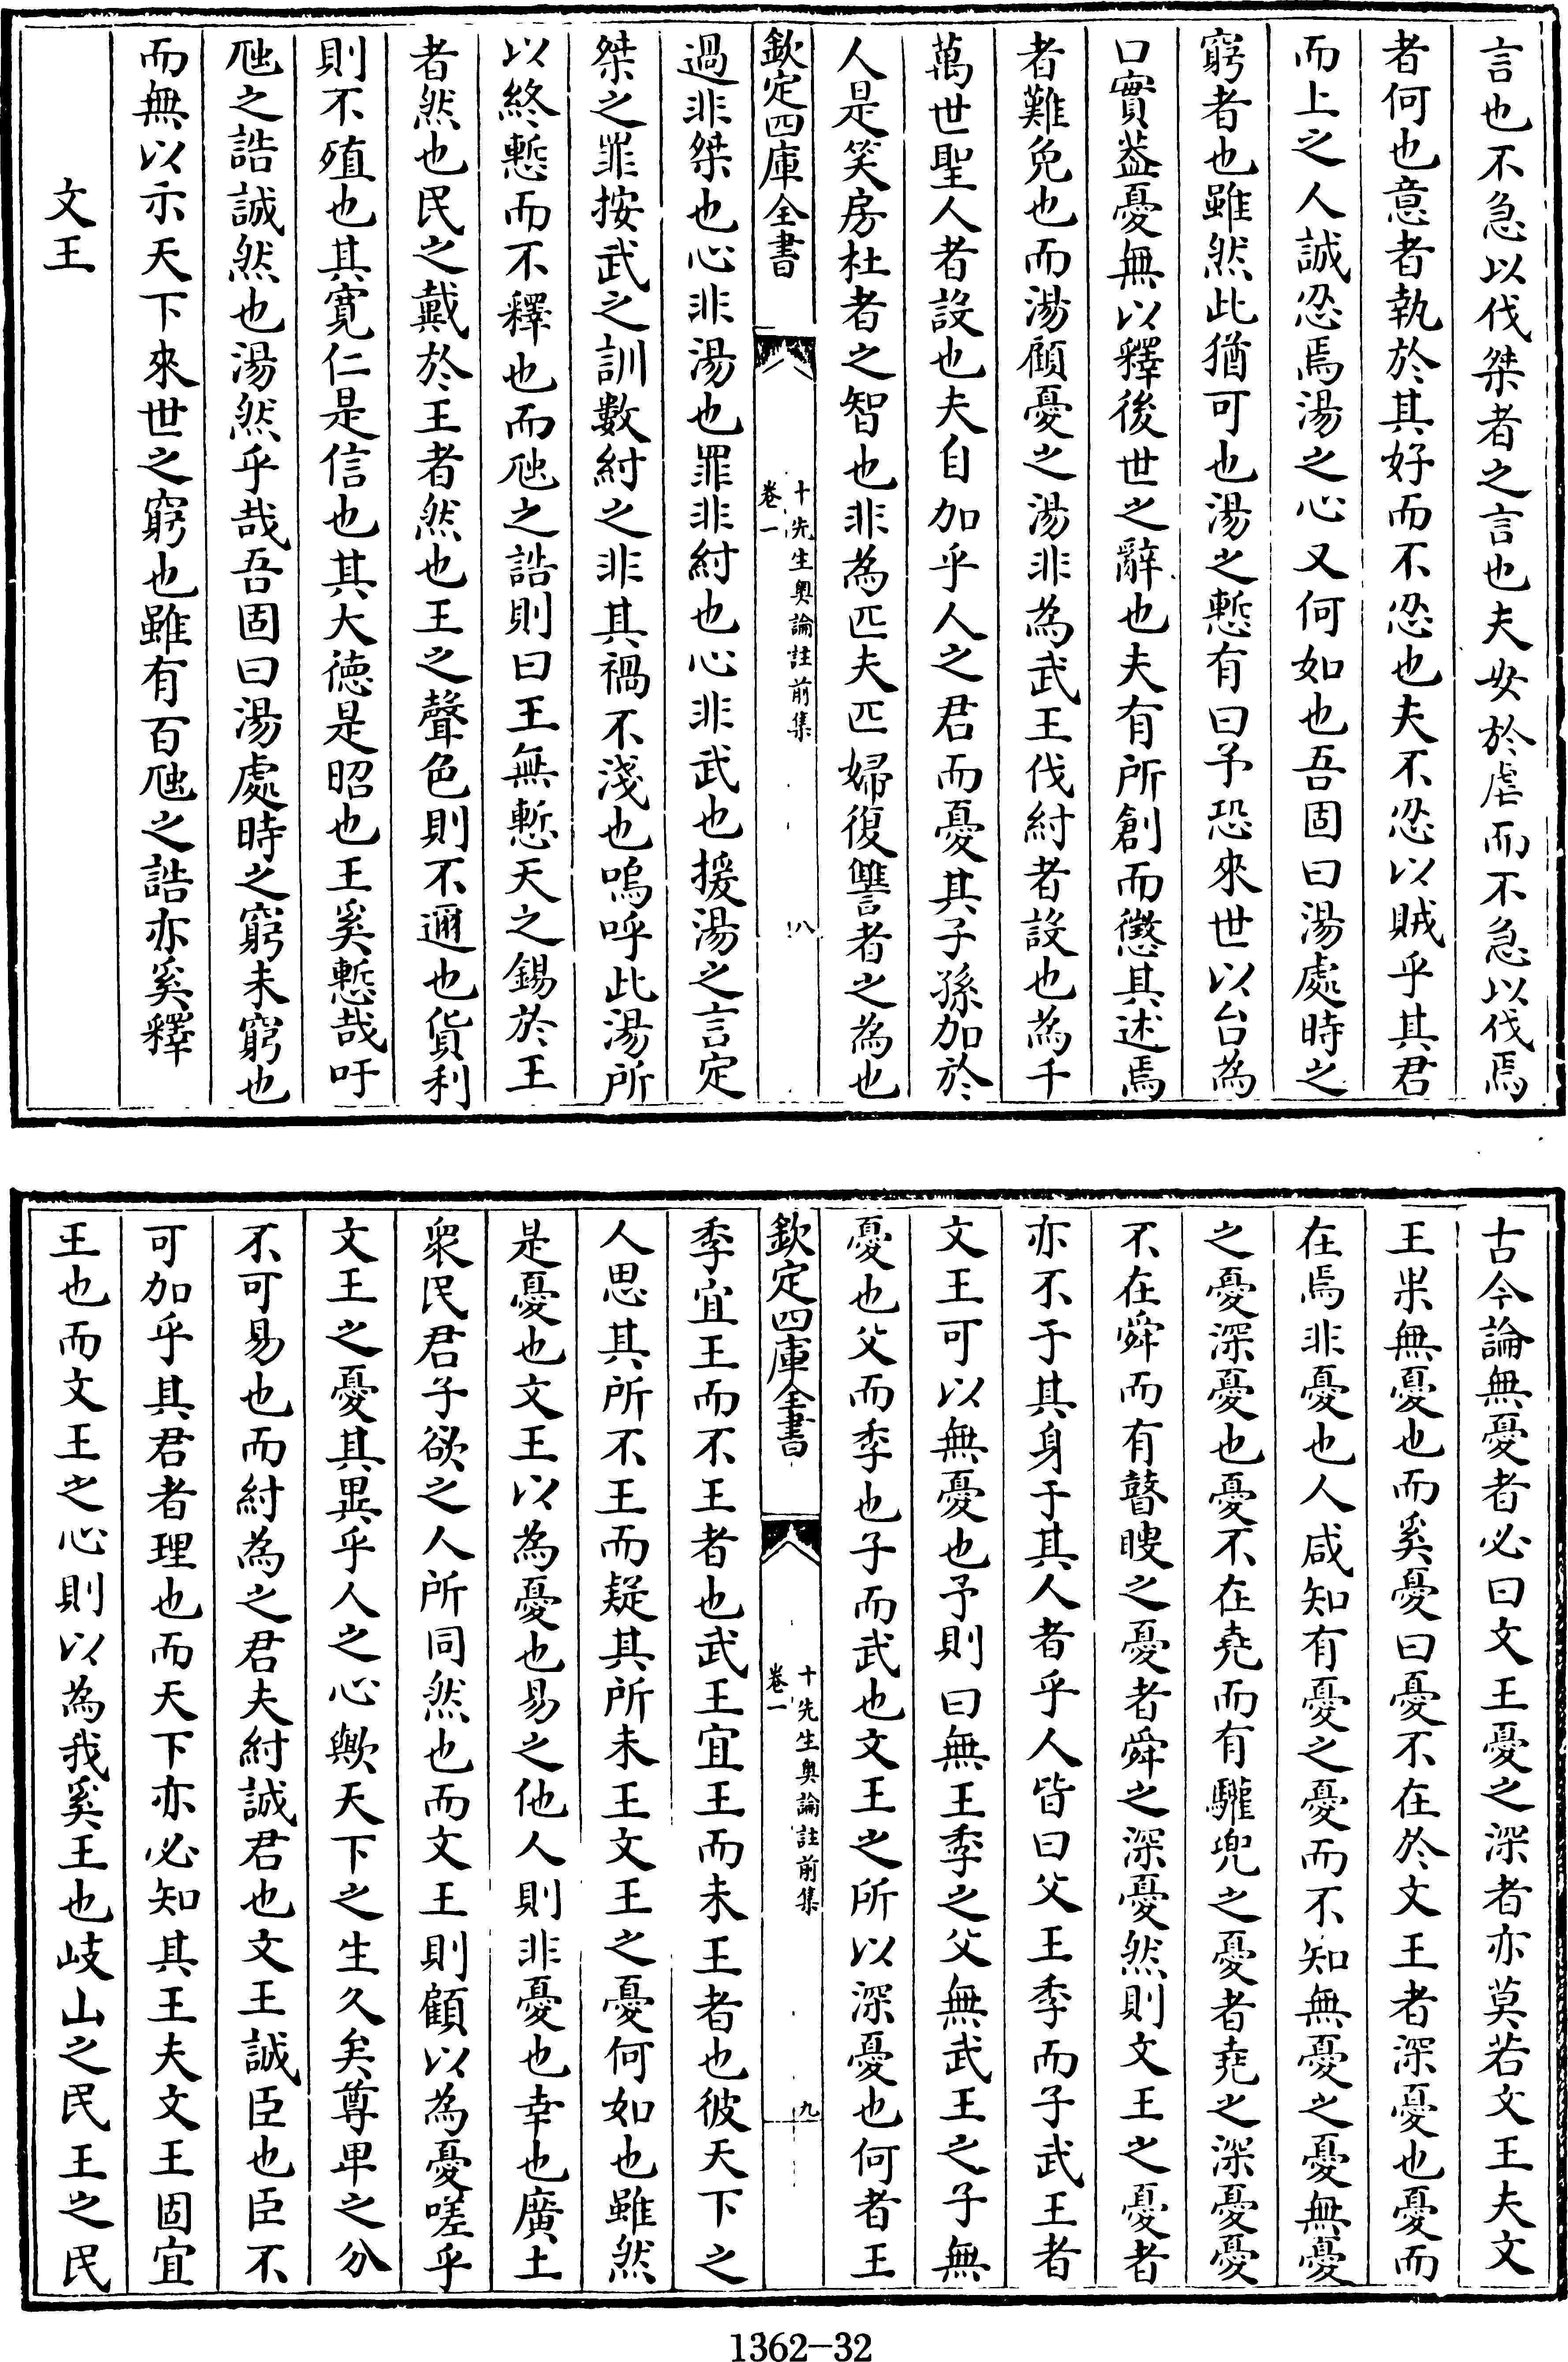 言也不急以伐桀者之言也夫安於虐而不急以伐焉
者何也意者執於其好而不忍也夫不忍以賊乎其君
而上之人誠忍焉湯之心又何如也吾固曰湯處時之
窮者也雖然此猶可也湯之慙有曰予恐來世以台為
口實葢憂無以釋後世之辭也夫有所創而懲其述焉
者難免也而湯顧憂之湯非為武王伐紂者設也為千
萬世聖人者設也夫自加乎人之君而憂其子孫加於
人是笑房杜者之智也非為匹夫匹婦復讐者之為也
欽定四庫全書
十先生奥論註前集
卷一
八
過非桀也心非湯也罪非紂也心非武也援湯之言定
桀之罪按武之訓數紂之非其禍不淺也嗚呼此湯所
以終慙而不釋也而虺之誥則曰王無慙天之錫於王
者然也民之戴於王者然也王之聲色則不邇也貨利
則不殖也其寛仁是信也其大德是昭也王奚慙哉吁
虺之誥誠然也湯然乎哉吾固曰湯處時之窮未窮也
而無以示天下來世之窮也雖有百虺之誥亦奚釋
文王
古今論無憂者必曰文王憂之深者亦莫若文王夫文
王果無憂也而奚憂曰憂不在於文王者深憂也憂而
在焉非憂也人咸知有憂之憂而不知無憂之憂無憂
之憂深憂也憂不在堯而有驩兜之憂者堯之深憂憂
不在舜而有瞽瞍之憂者舜之深憂然則文王之憂者
亦不于其身于其人者乎人皆曰父王季而子武王者
文王可以無憂也予則曰無王季之父無武王之子無
憂也父而季也子而武也文王之所以深憂也何者王
欽定四庫全書
十先生奥論註前集
卷一
九
季宜王而不王者也武王宜王而未王者也彼天下之
人思其所不王而疑其所未王文王之憂何如也雖然
是憂也文王以為憂也易之他人則非憂也幸也廣土
衆民君子欲之人所同然也而文王則顧以為憂嗟乎
文王之憂其異乎人之心歟天下之生久矣尊卑之分
不可易也而紂為之君夫紂誠君也文王誠臣也臣不
可加乎其君者理也而天下亦必知其王夫文王固宜
王也而文王之心則以為我奚王也岐山之民王之民
1362-32